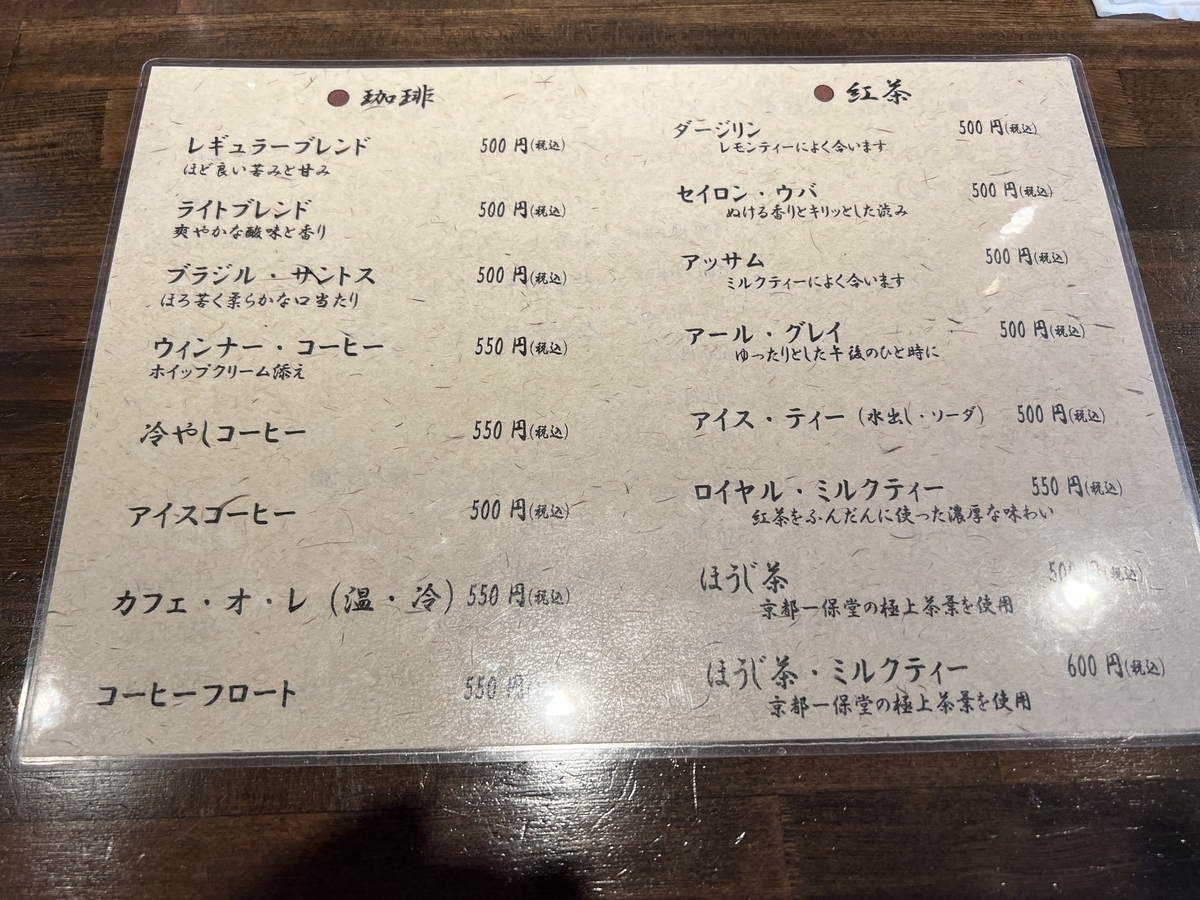 珈琲
レギュラーブレンド 500円(税込)
ほど良い苦みと甘み
ライトブレンド 500円(税込)
爽やかな酸味と香り
ブラジル・サントス 500円(税込)
ほろ苦く柔らかな口当たり
ウィンナー・コーヒー 550円(税込)
ホイップクリーム添え
冷やしコーヒー 550円(税込)
アイスコーヒー 500円(税込)
カフェ・オ・レ（温・冷） 550円(税込)
コーヒーフロート 550円
紅茶
ダージリン 500円(税込)
レモンティーによく合います
セイロン・ウバ 500円(税込)
ぬける香りとキリッとした渋み
アッサム 500円(税込)
ミルクティーによく合います
アール・グレイ 500円(税込)
ゆったりとした午後のひと時に
アイス・ティー（水出し・ソーダ） 500円(税込)
ロイヤル・ミルクティー 550円(税込)
紅茶をふんだんに使った濃厚な味わい
ほうじ茶 500円(税込)
京都一保堂の極上茶葉を使用
ほうじ茶・ミルクティー 600円(税込)
京都一保堂の極上茶葉を使用